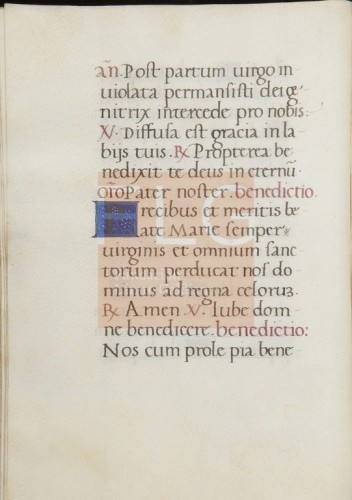 añ. Post partum uirgo in
uiolata permansisti dei ge
nitrix intercede pro nobis.
V. Diffusa est gracia in la
bijs tuis. R. Propterea be
nedixit te deus in eternũ.
orõ Pater noster. benedictio.
Precibus et meritis be
ate Marie semper
uirginis et omnium sanc
torum perducat nos do
minus ad regna celoruꝫ.
R. Amen. V. Iube dom
ne benedicere. benedictio:
Nos cum prole pia bene